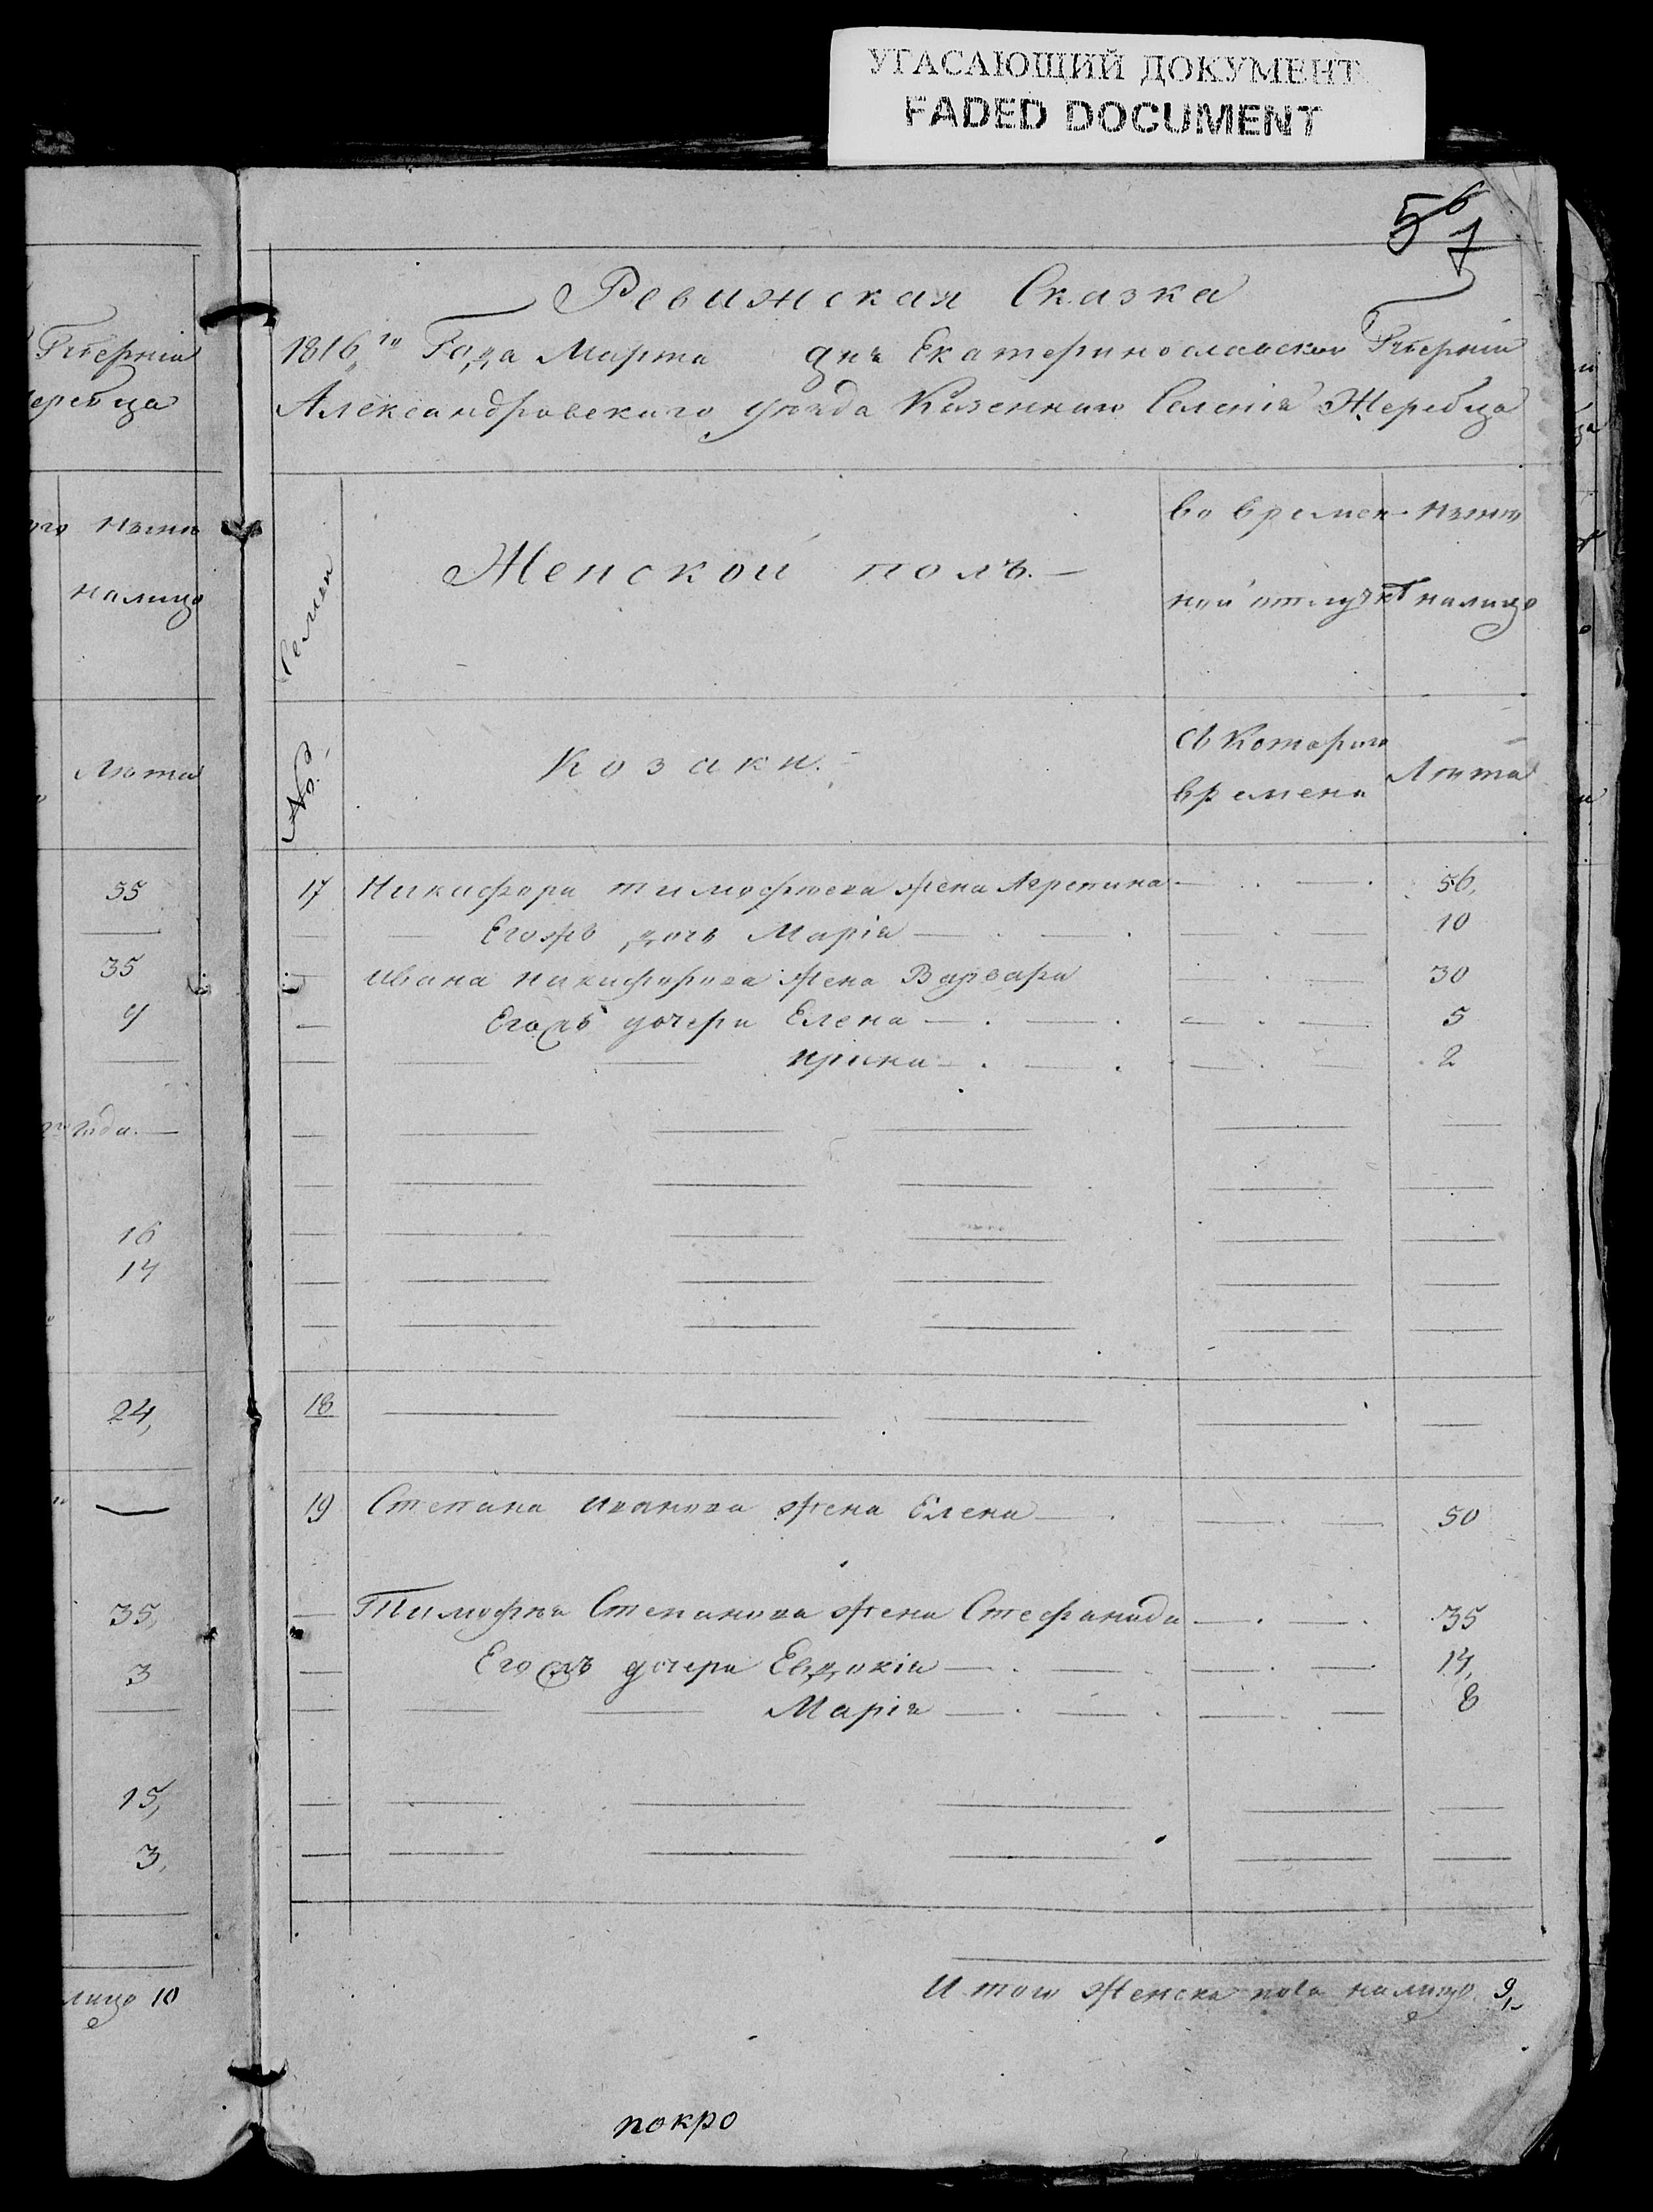 УГАСАЮЩИЙ ДОКУМЕНТ
FADED DOCUMENT
Губерніи
еребца
нынѣ
налицо
Лѣта
55
35
4
года.
16
14
24,
35,
3
15,
3,
лицо 10
Ревижская Сказка
1816го Года Марта дня Екатеринославской Губерніи
Александровскаго уѣзда Казеннаго Селенія Жеребца
Семьи
Женской полъ.
во времен нынѣ
ной отлучкѣ налицо
№
Козаки.
Съ Котораго
времени
Лѣта
17 Никифора тимофѣева жена Агрепина 56,
Егожъ дочь Марія 10
Ивана никифорова жена Варвара 30
Егожъ дочери Елена 5
ирина 2
18
19 Степана иванова жена Елена 50
Тимофѣя Степанова жена Стефанида 35
Егожъ дочери Евдокія 14,
Марія 8
Итого женска пола налицо 9,
покро